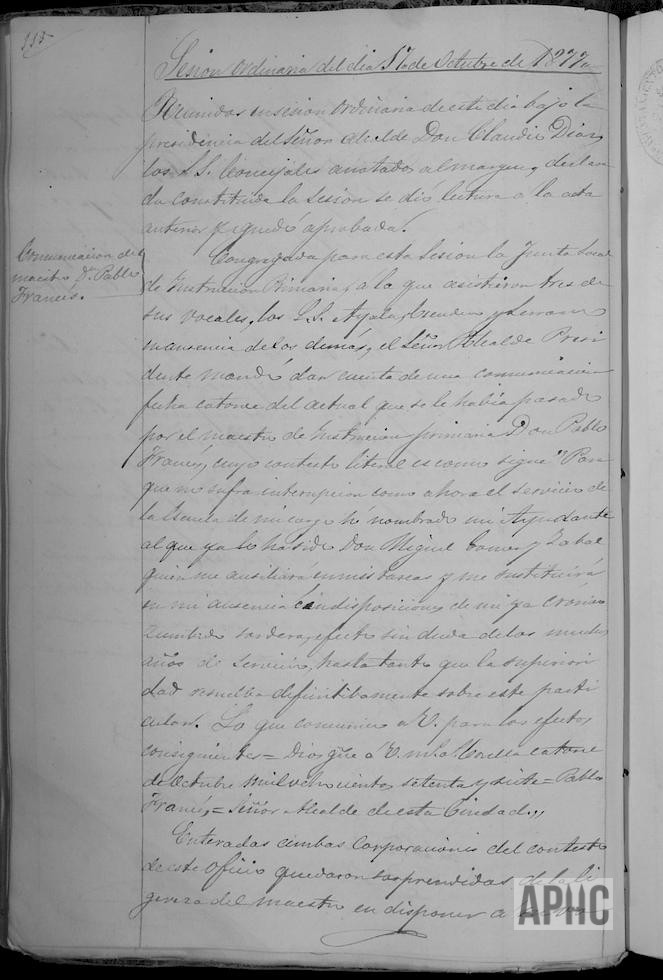 115
Sesion ordinaria del dia 17 de Octubre de 1877
Reunidos en sesion ordinaria de este dia bajo la
presidencia del Señor Alcalde Don Claudio Diaz,
los S.S. Concejales anotados al margen, declara
da constituida la Sesion se dió lectura a la acta
anterior y quedó aprobada.
Comunicacion del
maestro Dn. Pablo
Francés.
Congregada para esta Sesion la Junta Local
de Instruccion Primaria, a la que asistieron tres de
sus vocales, los S.S. Ayala, y Serrano
en ausencia de los demás, el Señor Alcalde Presi
dente mandó dar cuenta de una comunicacion
fecha catorce del actual que se le había pasado
por el maestro de Instruccion primaria Don Pablo
Francés, cuyo contesto literal es como sigue "Para
que no sufra interrupcion como ahora el servicio de
la Escuela de mi cargo hé nombrado mi Ayudante
al que ya lo ha sido Don Miguel Gomez y
quien me ausiliará en mis tareas y me sustituirá
en mi ausencia é indisposiciones de mi ya cronico
zumbido sordera, efecto sin duda de los muchos
años de servicio, hasta tanto que la superiori
dad resuelba definitibamente sobre este parti
cular. Lo que comunico a V. para los efectos
consiguientes = Dios gue. a V. m. a. Utrilla catorce
de Octubre mil ochocientos setenta y siete = Pablo
Francés = Señor Alcalde de esta Ciudad.,,
Enteradas ambas Corporaciones del contesto
de este oficio quedaron sorprendidas de la li
gereza del maestro en disponer a
APHC